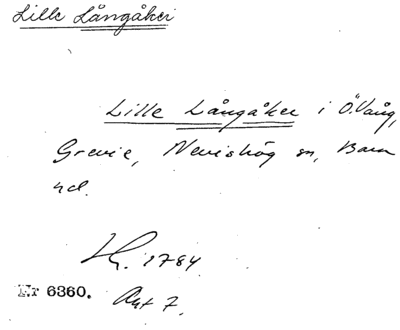 Lille Långåker
Lille Långåker i Ö. Vång,
Grevie, Nevishög sn, Bara
hd.
1784
Nr 6360. Akt 7.